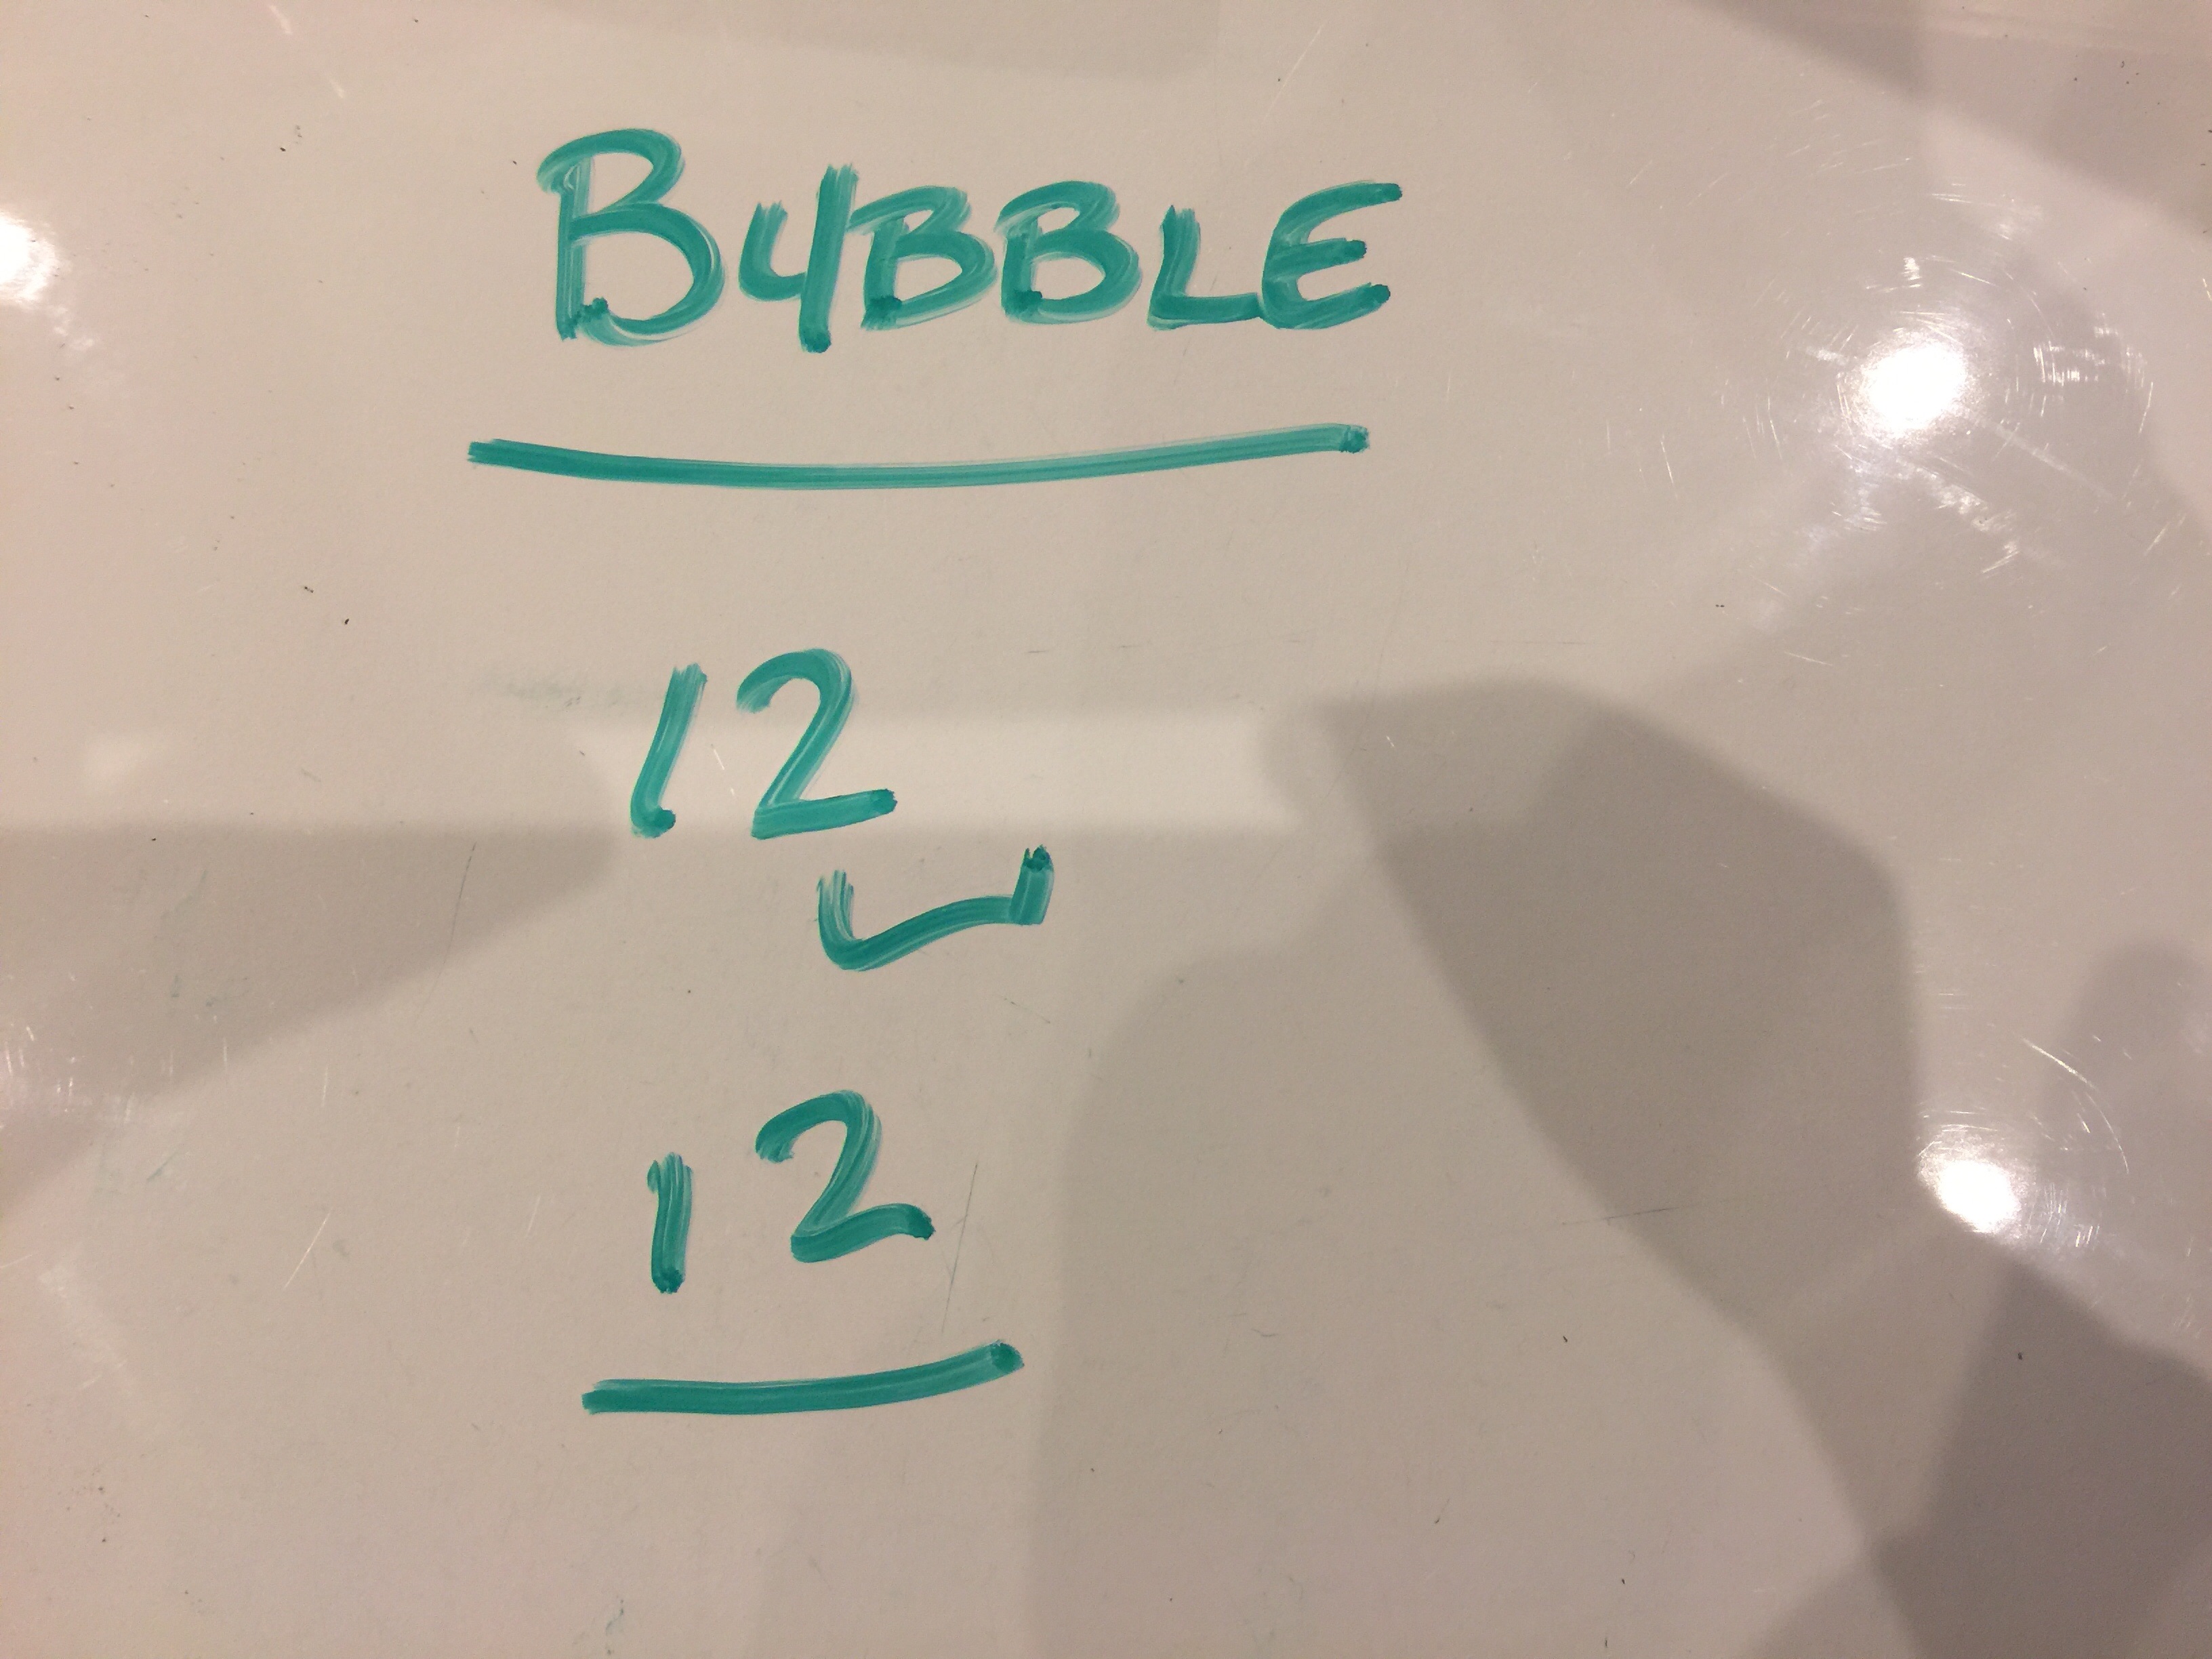 BUBBLE
12
12